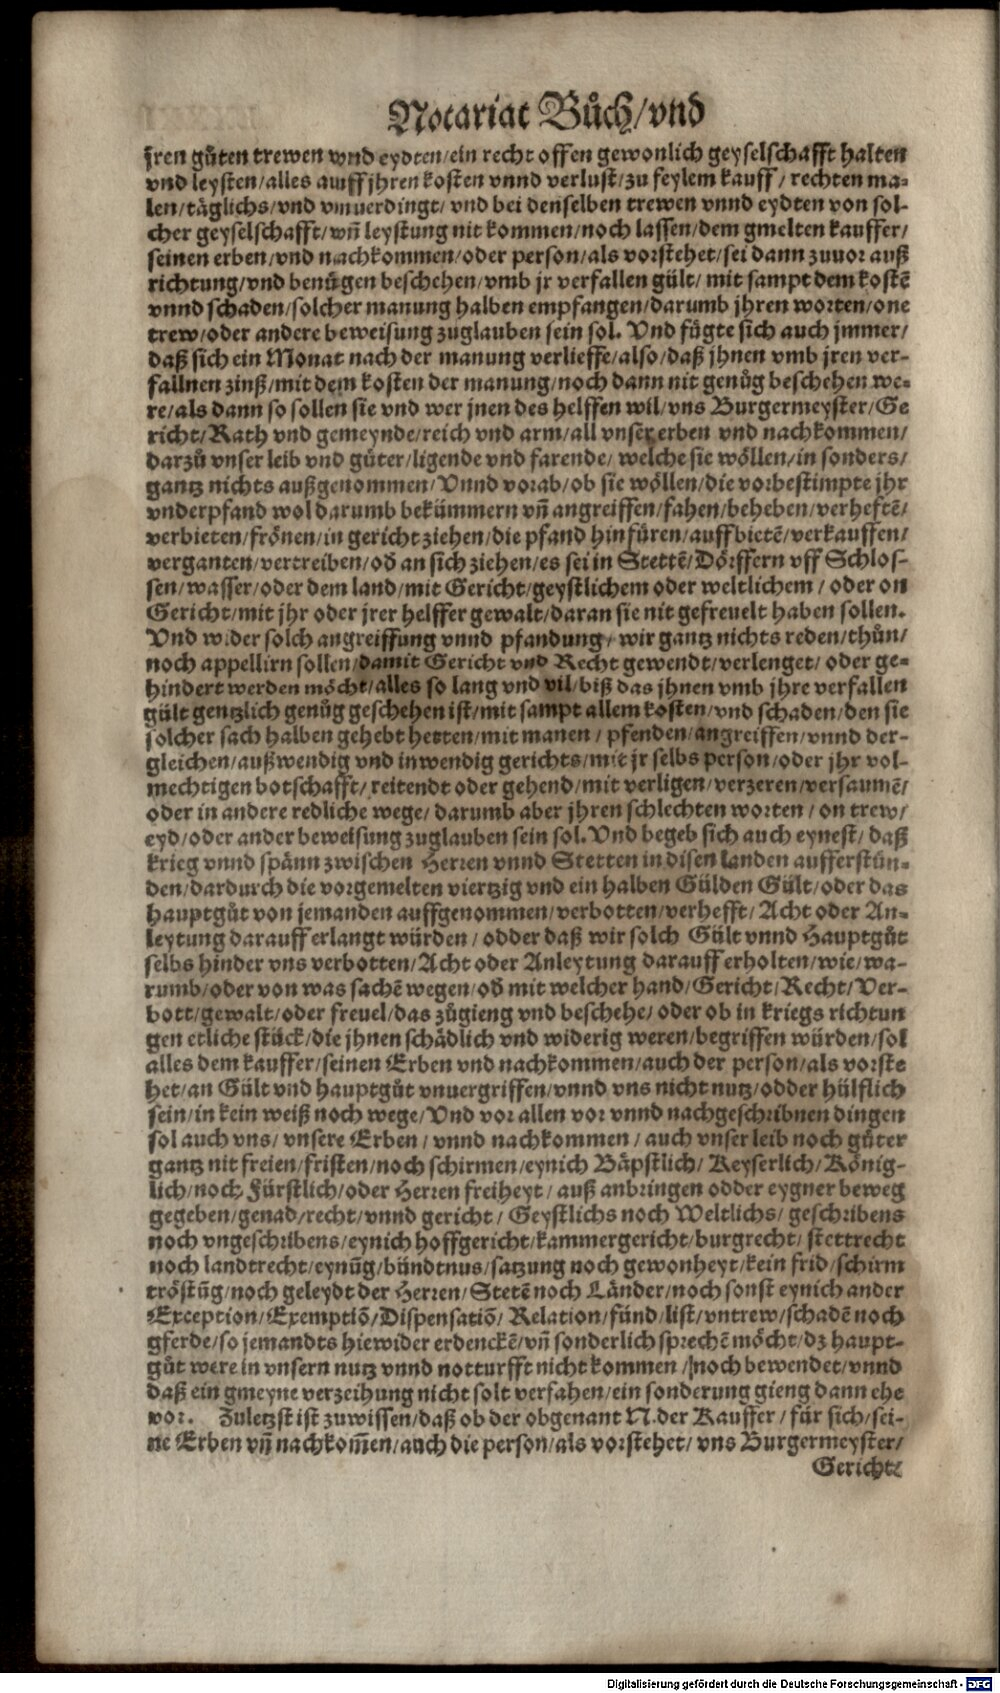 Notariat Bůch/vnd
jren gůten trewen vnnd eydten/ein recht offen gewonlich geyselschafft halten
vnd leysten/alles auff jhren kosten vnnd verlust/zu feylem kauff/rechten ma-
len/täglichs/vnd vnuerdingt/vnd bei denselben trewen vnnd eydten von sol-
cher geyselschafft/vñ leystung nit kommen/noch lassen/dem gmelten kauffer/
seinen erben/vnd nachkommen/oder person/als vorstehet/sei dann zuuor auß
richtung/vnd benügen beschehen/vmb jr verfallen gült/mit sampt dem kostē
vnnd schaden/solcher manung halben empfangen/darumb jhren worten/one
trew/oder andere beweisung zuglauben sein sol. Vnd fügte sich auch jmmer/
daß sich ein Monat nach der manung verlieffe/also/daß jhnen vmb jren ver-
fallnen zinß/mit dem kosten der manung/noch dann nit genůg beschehen we-
re/als dann so sollen sie vnd wer jnen des helffen wil/vns Burgermeyster/Ge
richt/Rath vnd gemeynde/reich vnd arm/all vnser erben vnd nachkommen/
darzů vnser leib vnd güter/ligende vnd farende/welche sie wöllen/in sonders/
gantz nichts außgenommen/Vnnd vorab/ob sie wöllen/die vorbestimpte jhr
vnderpfand wol darumb bekümmern vñ angreiffen/fahen/beheben/verheftē/
verbieten/frönen/in gericht ziehen/die pfand hinfüren/auffbietē/verkauffen/
verganten/vertreiben/oď an sich ziehen/es sei in Stettē/Dörffern vff Schlos-
sen/wasser/oder dem land/mit Gericht/geystlichem oder weltlichem/oder on
Gericht/mit jhr oder jrer helffer gewalt/daran sie nit gefreuelt haben sollen.
Vnd wider solch angreiffung vnnd pfandung/wir gantz nichts reden/thůn/
noch appellirn sollen/damit Gericht vnd Recht gewendt/verlenget/oder ge-
hindert werden möcht/alles so lang vnd vil/biß das jhnen vmb jhre verfallen
gült gentzlich genůg geschehen ist/mit sampt allem kosten/vnd schaden/den sie
solcher sach halben gehebt hetten/mit manen/pfenden/angreiffen/vnnd der-
gleichen/außwendig vnd inwendig gerichts/mit jr selbs person/oder jhr vol-
mechtigen botschafft/reitendt oder gehend/mit verligen/verzeren/versaumē/
oder in andere redliche wege/darumb aber jhren schlechten worten/on trew/
eyd/oder ander beweisung zuglauben sein sol. Vnd begeb sich auch eynest/daß
krieg vnnd spänn zwischen Herren vnnd Stetten in disen landen aufferstün-
den/dardurch die vorgemelten viertzig vnd ein halben Gülden Gült/oder das
hauptgůt von jemanden auffgenommen/verbotten/verhefft/Acht oder An-
leytung darauff erlangt würden/odder daß wir solch Gült vnnd Hauptgůt
selbs hinder vns verbotten/Acht oder Anleytung darauff erholten/wie/wa-
rumb/oder von was sachē wegen/oď mit welcher hand/Gericht/Recht/Ver-
bott/gewalt/oder freuel/das zůgieng vnd beschehe/oder ob in kriegs richtun
gen etliche stück/die jhnen schädlich vnd widerig weren/begriffen würden/sol
alles dem kauffer/seinen Erben vnd nachkommen/auch der person/als vorste
het/an Gült vnd hauptgůt vnuergriffen/vnnd vns nicht nutz/odder hülflich
sein/in kein weiß noch wege/Vnd vor allen vor vnnd nachgeschribnen dingen
sol auch vns/vnsere Erben/vnnd nachkommen/auch vnser leib noch güter
gantz nit freien/fristen/noch schirmen/eynich Bäpstlich/Keyserlich/König-
lich/noch Fürstlich/oder Herren freiheyt/auß anbringen odder eygner beweg
gegeben/genad/recht/vnnd gericht/Geystlichs noch Weltlichs/geschribens
noch vngeschribens/eynich hoffgericht/kammergericht/burgrecht/stettrecht
noch landtrecht/eynũg/bündtnus/satzung noch gewonheyt/kein frid/schirm
tröstũg/noch geleydt der Herren/Stetē noch Länder/noch sonst eynich ander
Exception/Exemptiō/Dispensatiō/Relation/fünd/list/vntrew/schadē noch
gferde/so jemandts hiewider erdenckē/vñ sonderlich sprechē möcht/dz haupt-
gůt were in vnsern nutz vnnd notturfft nicht kommen/noch bewendet/vnnd
daß ein gmeyne verzeihung nicht solt verfahen/ein sonderung gieng dann ehe
vor. Zuletzst ist zuwissen/daß ob der obgenant N. der Kauffer/für sich/sei-
ne Erben vñ nachkom̃en/auch die person/als vorstehet/vns Burgermeyster/
Gericht/
Digitalisierung gefördert durch die Deutsche Forschungsgemeinschaft - DFG